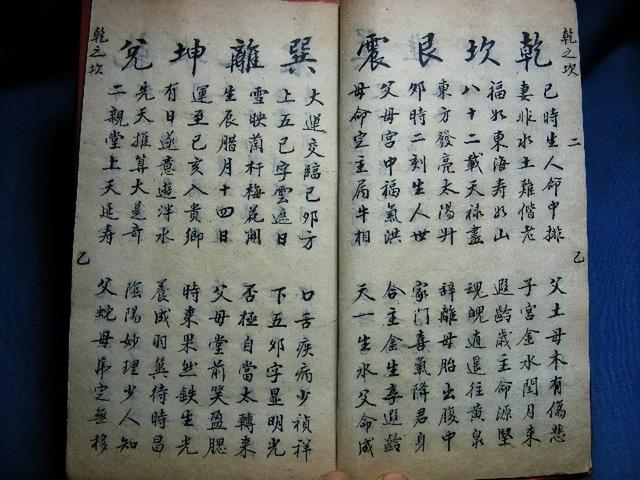 乾之坎 二 乙
乾坎艮震
巳時生人命中排 父土母木有傷悲
妻非水土難偕老 子宮金水閏月來
福如東海壽如山 遐齡歲主命源堅
八十二載天祿盡 魂魄逍遙往黃泉
東方發亮太陽升 辭離母胎出腹中
卯時二刻生人世 家門喜氣降君身
父母宮中福氣洪 合主金生享遐齡
母命定主屬牛相 天一生水父命成
巽離坤兌
大運交臨己卯方 口舌疾病少禎祥
上五己字雲遮日 下五卯字顯明光
雪映蘭杆梅花開 否極自當太轉來
生辰腊月十四日 父母堂前笑盈腮
運至己亥入貴鄉 時來果然鉄生光
有日遂意遊泮水 養成羽翼待時昌
先天推算大是奇 陰陽妙理少人知
二親堂上天延壽 父蛇母虎定無移
乾之坎 乙